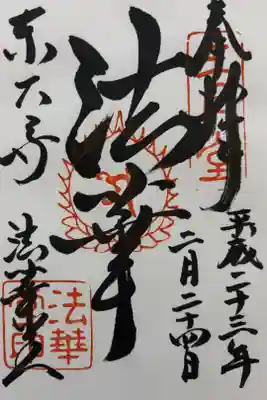 奉拝
平成二十三年
二月二十四日
法華
東大寺
法華堂